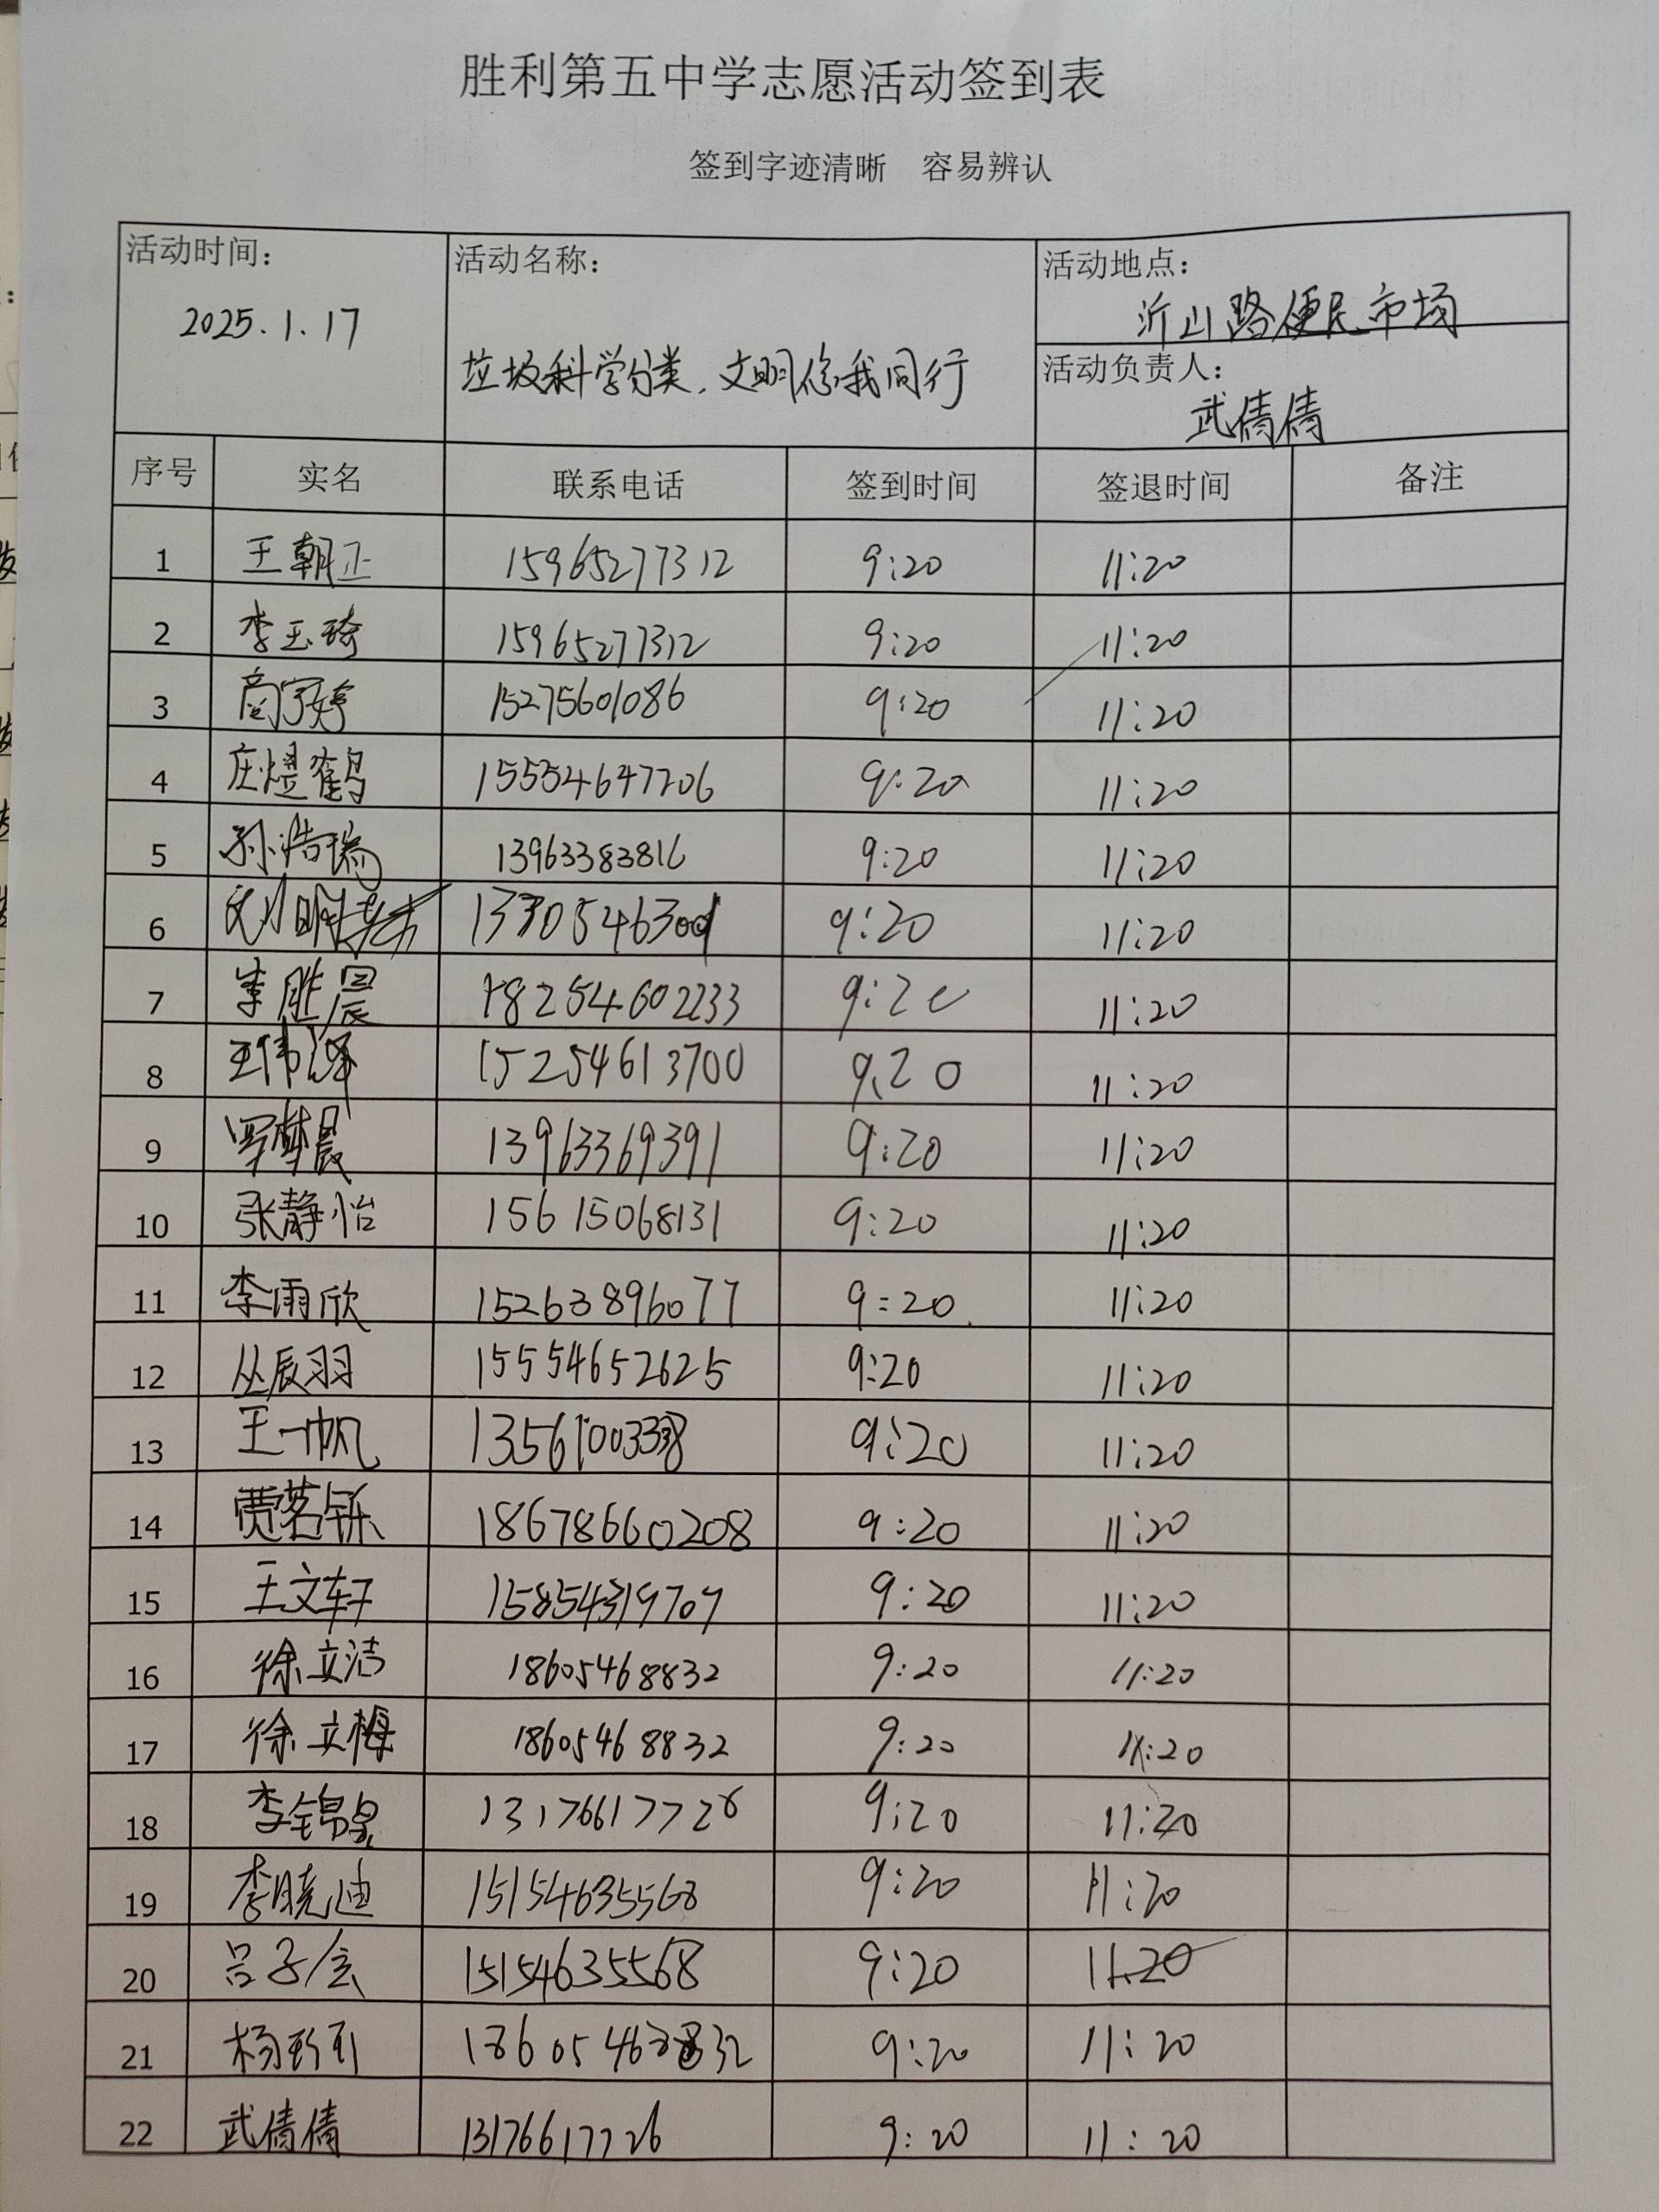 胜利第五中学志愿活动签到表
签到字迹清晰 容易辨认
活动时间: 2025.1.17
活动名称: 垃圾科学分类,文明你我同行
活动地点: 沂山路便民市场
活动负责人: 武倩倩
序号 实名 联系电话 签到时间 签退时间 备注
1 王朝正 15965277312 9:20 11:20
2 李玉琦 15965277312 9:20 11:20
3 商宇婷 15275601086 9:20 11:20
4 庄煜鹤 15554647206 9:20 11:20
5 孙浩瑞 13963383816 9:20 11:20
6 9:20 11:20
7 李胜晨 18254602233 9:20 11:20
8 王伟泽 15254613700 9:20 11:20
9 罗梦晨 13963369391 9:20 11:20
10 张静怡 15615068131 9:20 11:20
11 李雨欣 15263896077 9:20 11:20
12 丛辰羽 15554652625 9:20 11:20
13 王一帆 9:20 11:20
14 贾茗铄 18678660208 9:20 11:20
15 王文轩 15854319709 9:20 11:20
16 徐立洁 18605468832 9:20 11:20
17 徐立梅 18605468832 9:20 11:20
18 13176617726 9:20 11:20
19 李晓迪 15154635568 9:20 11:20
20 吕子会 15154635568 9:20 11:20
21 18605468832 9:20 11:20
22 武倩倩 13176617726 9:20 11:20